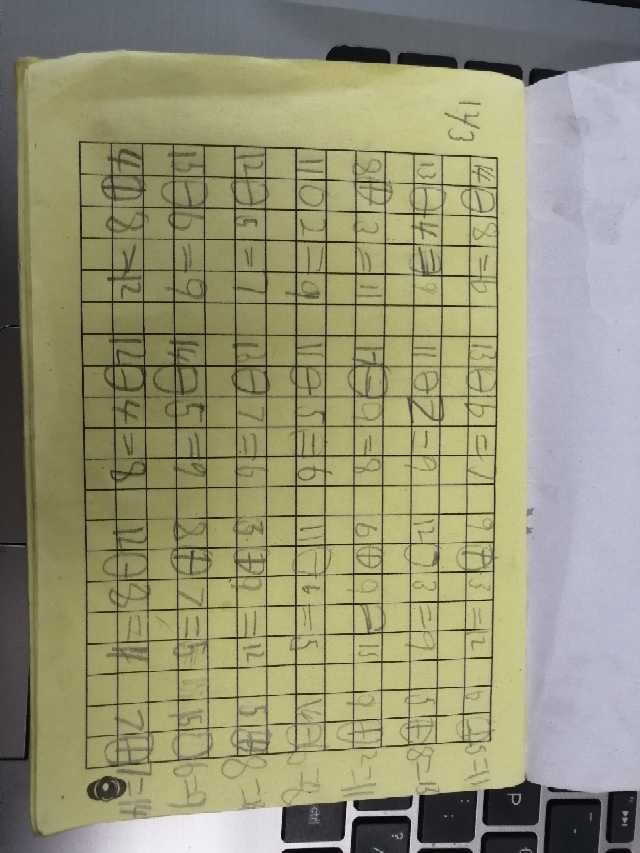 143
14⊖8=6 13⊖6=7 9⊕3=12 6⊕5=11
13⊖4=9 11⊖2=9 12⊖3=9 5⊕8=13
8⊕3=11 17⊖9=8 6⊕9=15 9⊕2=11
11○2=9 11⊖5=6 11⊖6=5 14⊖6=8
12⊖5=7 13⊖7=6 3⊕9=12 5⊕8=
15⊖6=9 14⊖5=9 8⊕7=15 15⊖6=9
4⊕8=12 12⊖4=8 7⊕7=14
P
ctrl